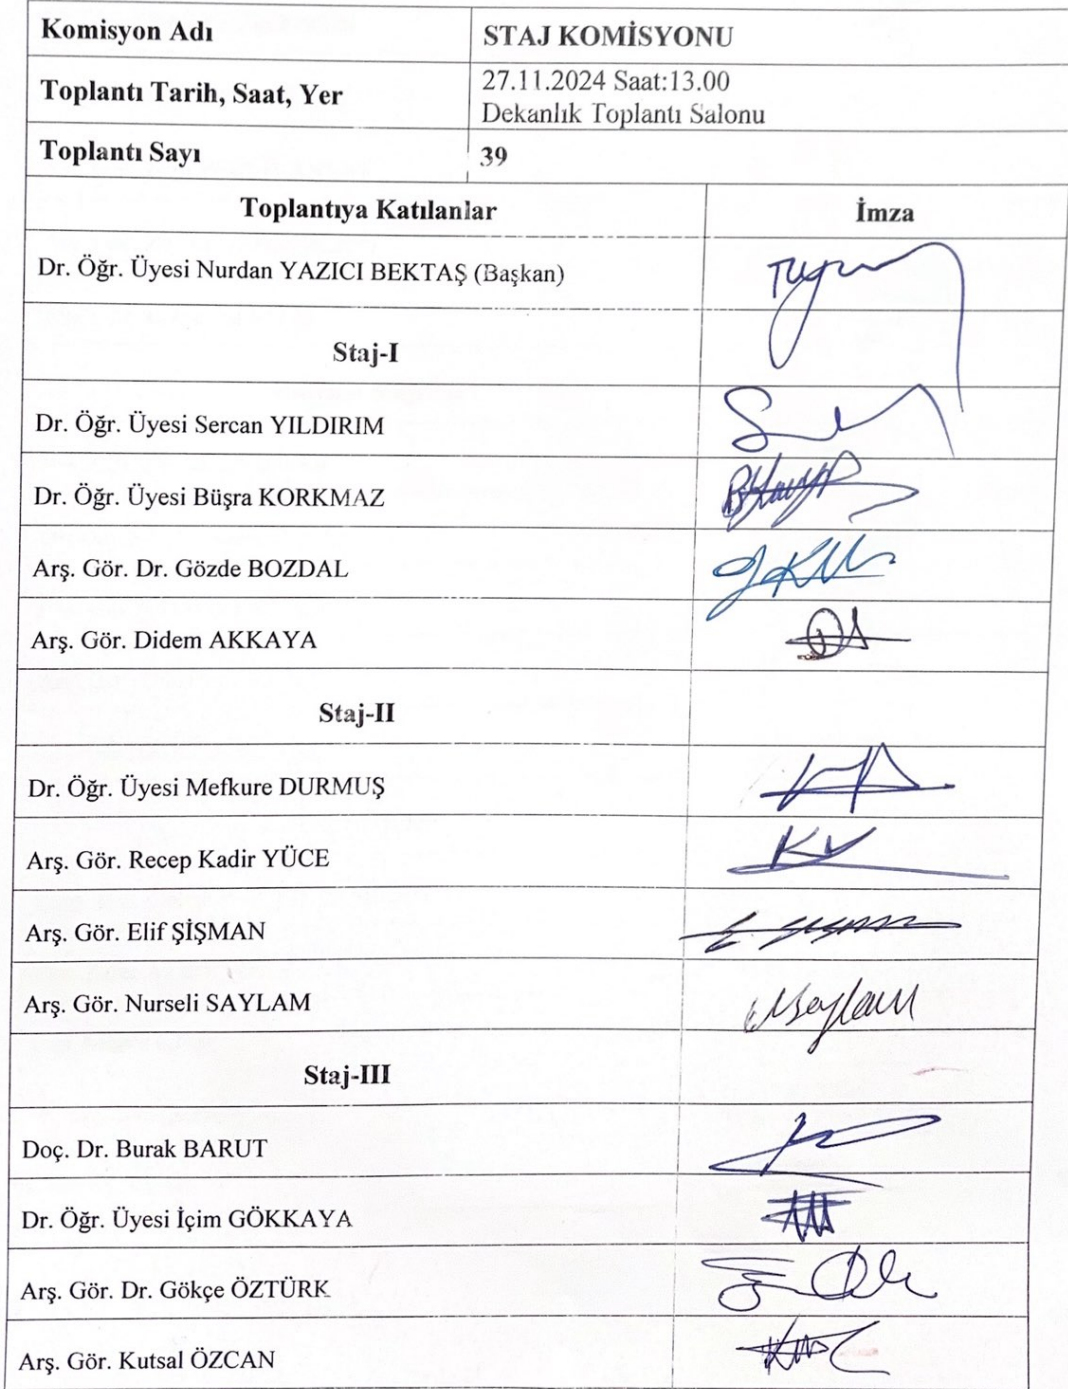 Komisyon Adı
STAJ KOMİSYONU
Toplantı Tarih, Saat, Yer
27.11.2024 Saat:13.00
Dekanlık Toplantı Salonu
Toplantı Sayı
39
Toplantıya Katılanlar
İmza
Dr. Öğr. Üyesi Nurdan YAZICI BEKTAŞ (Başkan)
Staj-I
Dr. Öğr. Üyesi Sercan YILDIRIM
Dr. Öğr. Üyesi Büşra KORKMAZ
Arş. Gör. Dr. Gözde BOZDAL
Arş. Gör. Didem AKKAYA
Staj-II
Dr. Öğr. Üyesi Mefkure DURMUŞ
Arş. Gör. Recep Kadir YÜCE
Arş. Gör. Elif ŞİŞMAN
Arş. Gör. Nurseli SAYLAM
Staj-III
Doç. Dr. Burak BARUT
Dr. Öğr. Üyesi İçim GÖKKAYA
Arş. Gör. Dr. Gökçe ÖZTÜRK
Arş. Gör. Kutsal ÖZCAN